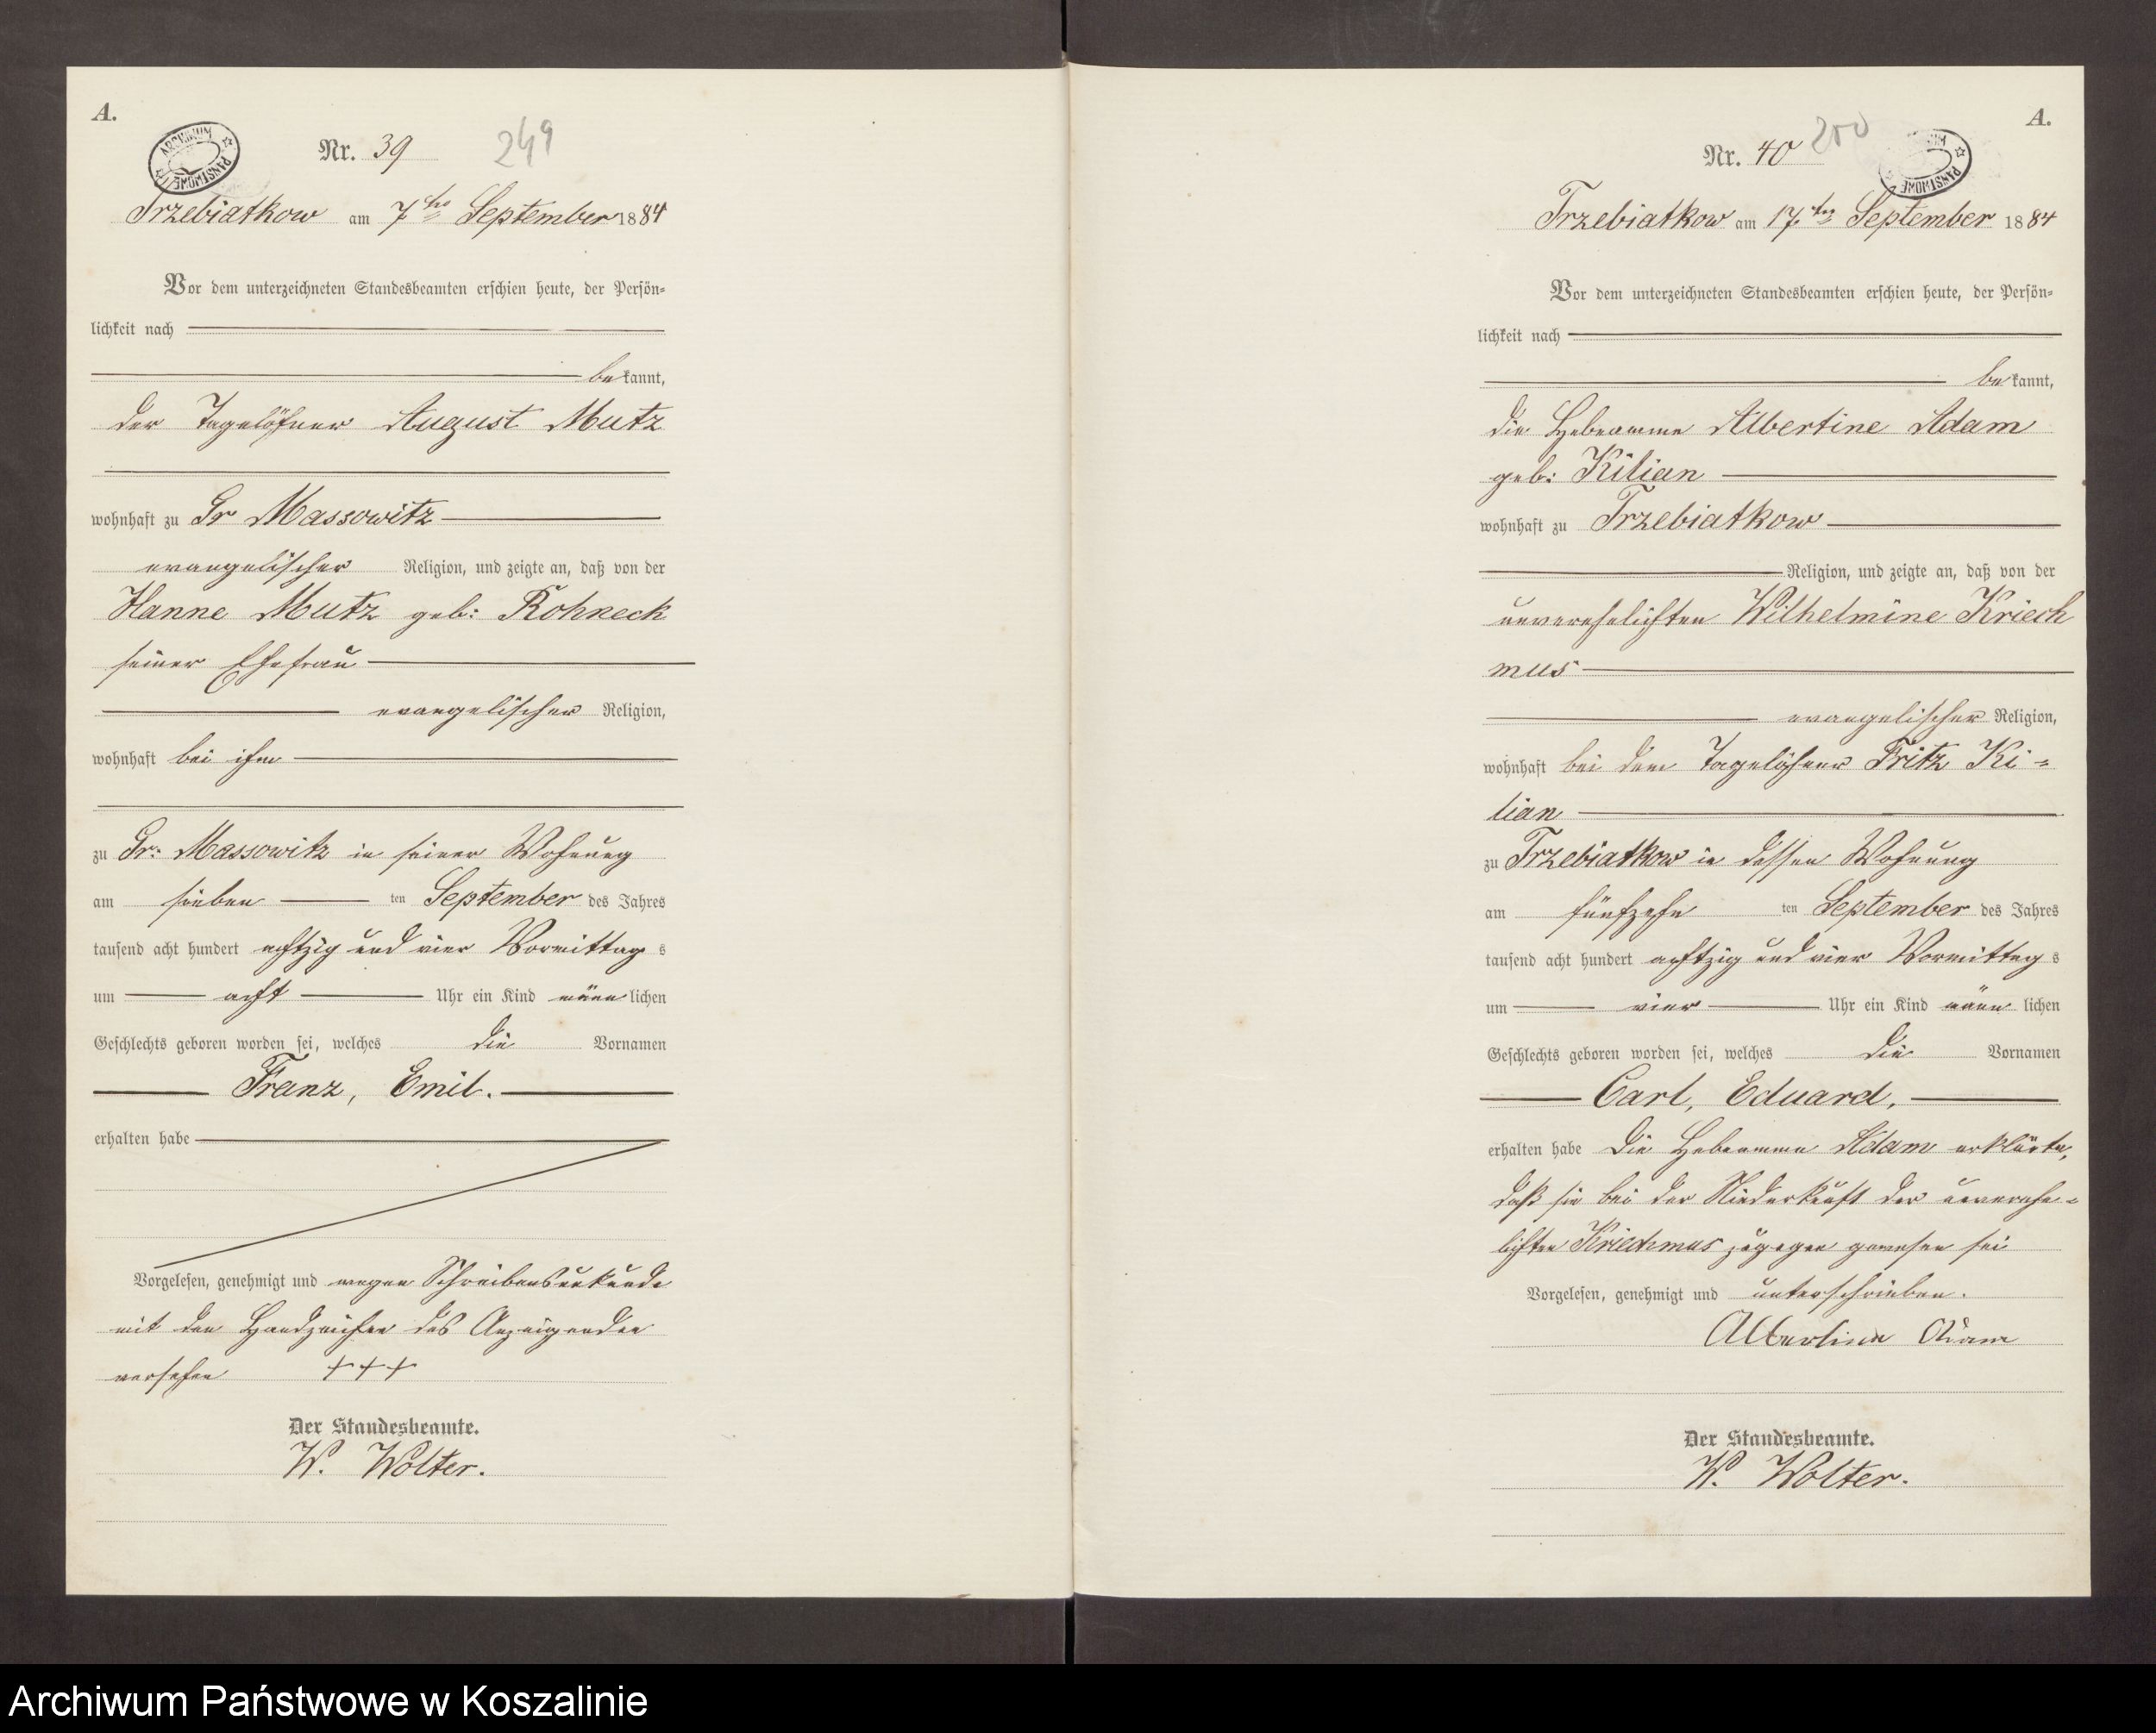 A.
ARCHIWUM PAŃSTWOWE
Nr. 39
249
Trzebiatkow am 7ten September 1884
Vor dem unterzeichneten Standesbeamten erschien heute, der Persön-
lichkeit nach
bekannt,
der Tagelöhner August Mutz
wohnhaft zu Gr Massowitz
evangelischer Religion, und zeigte an, daß von der
Hanne Mutz geb: Rohneck
seiner Ehefrau
evangelischer Religion,
wohnhaft bei ihm
zu Gr: Massowitz in seiner Wohnung
am sieben ten September des Jahres
tausend acht hundert achtzig und vier Vormittags
um acht Uhr ein Kind männlichen
Geschlechts geboren worden sei, welches die Vornamen
Franz, Emil.
erhalten habe
Vorgelesen, genehmigt und wegen Schreibensunkunde
mit den Handzeichen des Anzeigenden
versehen +++
Der Standesbeamte.
W. Wolter.
A.
Nr. 40
200
PAŃSTWOWE
Trzebiatkow am 17ten September 1884
Vor dem unterzeichneten Standesbeamten erschien heute, der Persön-
lichkeit nach
bekannt,
die Hebeamme Albertine Adam
geb: Kilian
wohnhaft zu Trzebiatkow
Religion, und zeigte an, daß von der
unverehelichten Wilhelmine Kriech
mus
evangelischer Religion,
wohnhaft bei dem Tagelöhner Fritz Ki-
lian
zu Trzebiatkow in dessen Wohnung
am fünfzehn ten September des Jahres
tausend acht hundert achtzig und vier Vormittags
um vier Uhr ein Kind männlichen
Geschlechts geboren worden sei, welches die Vornamen
Carl, Eduard,
erhalten habe Die Hebeamme Adam erklärte,
daß sie bei der Niederkunft der unverehe-
lichten Kriechmus zugegen gewesen sei
Vorgelesen, genehmigt und unterschrieben.
Albertine Adam
Der Standesbeamte.
W. Wolter.
Archiwum Państwowe w Koszalinie